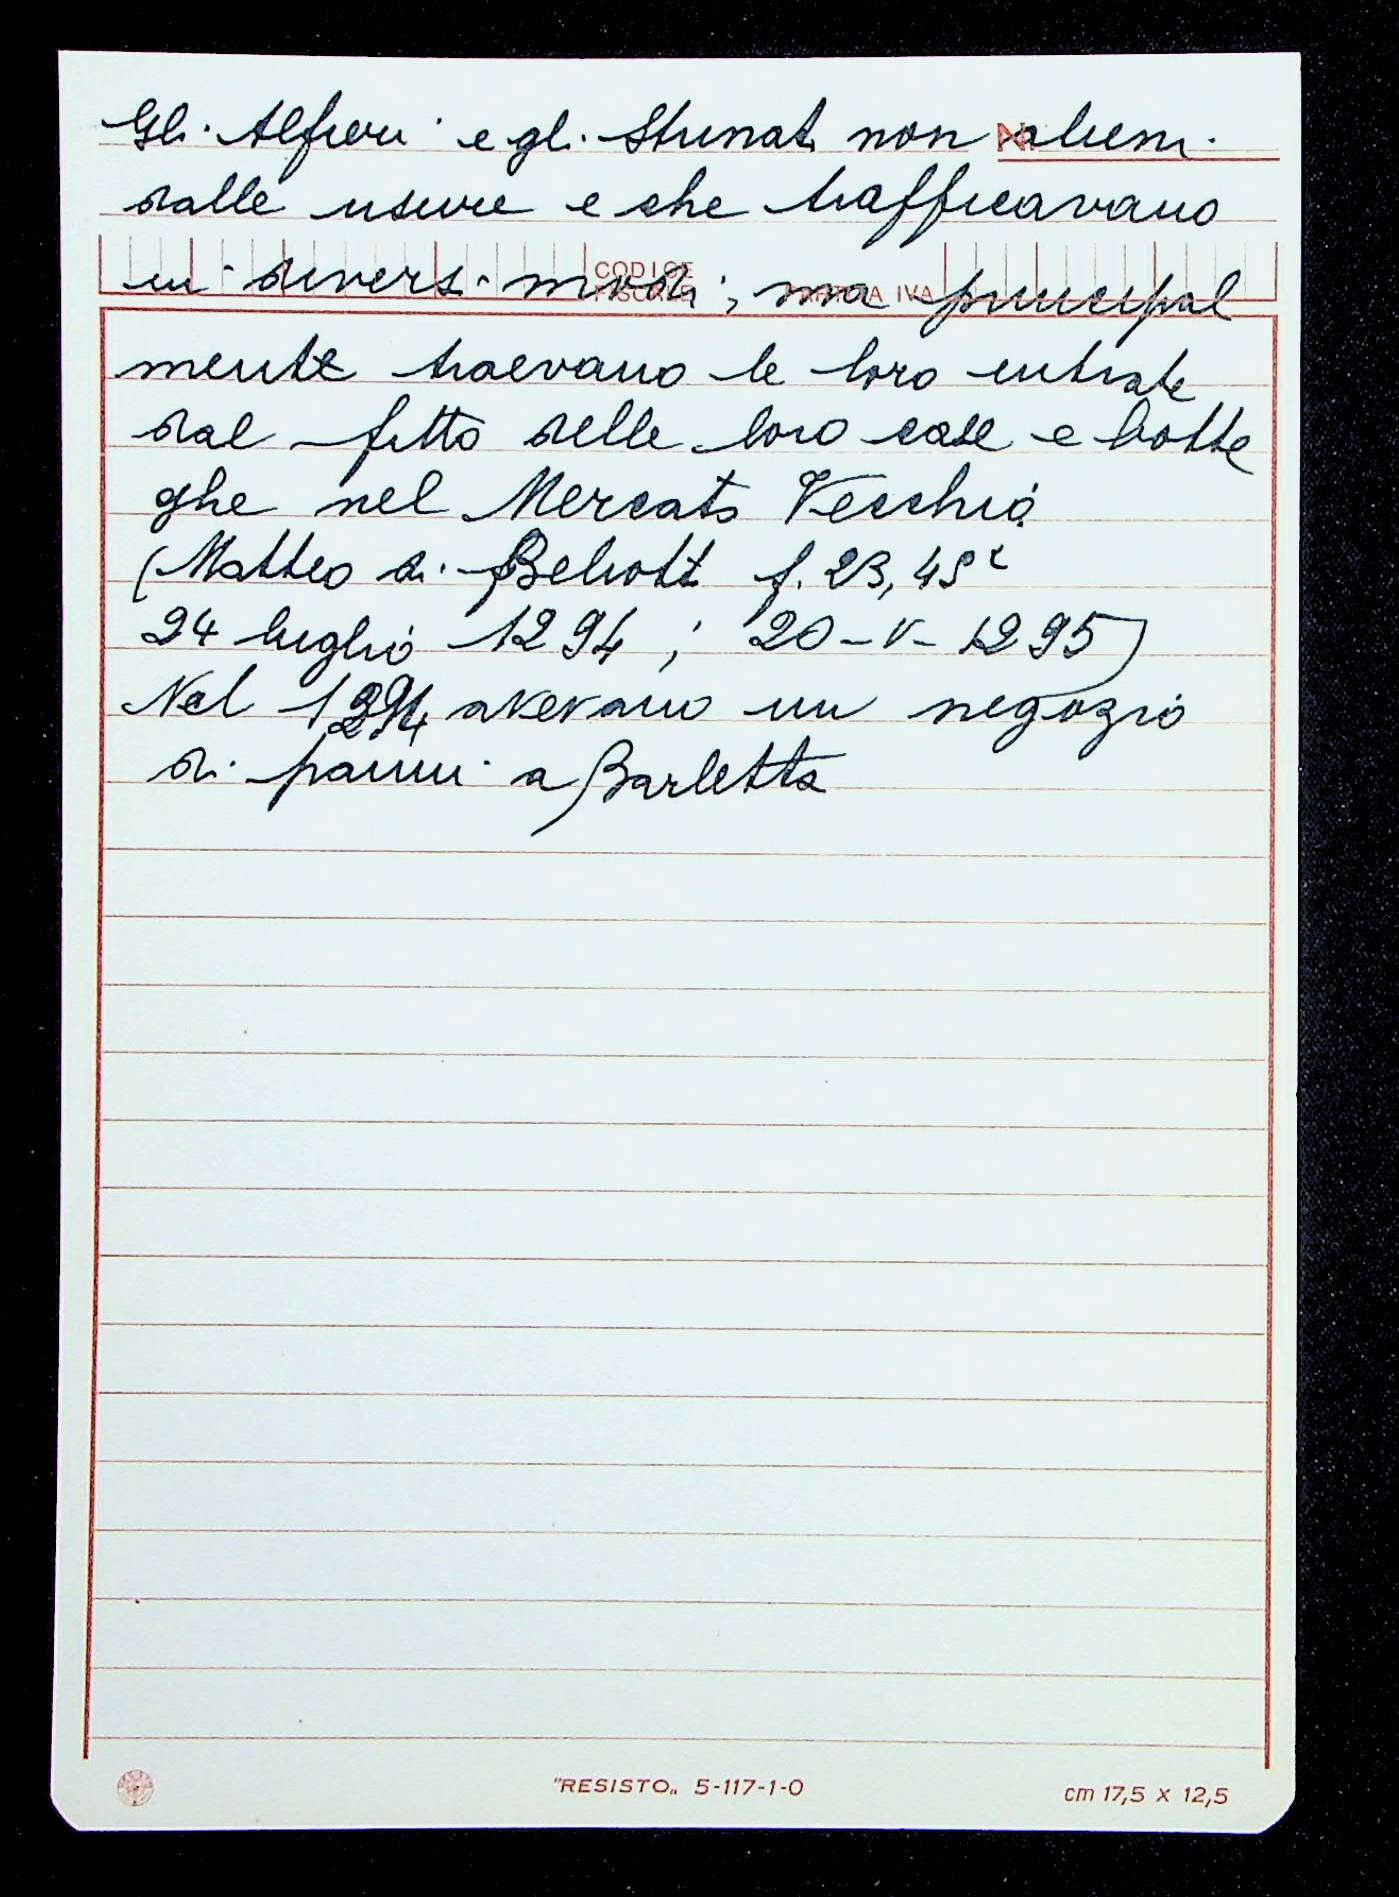 Gli Alfieri e gli Strinati non alieni
dalle usure e che trafficavano
in diversi modi, ma principal
mente traevano le loro entrate
dal fitto delle loro case e botte
ghe nel Mercato Vecchio
(Matteo di Beliotti f. 23, 45
24 luglio 1294; 20-V-1295)
Nel 1294 avevano un negozio
di panni a Barletta
N.
CODICE
FISCALE PARTITA IVA
"RESISTO„ 5-117-1-0
cm 17,5 x 12,5